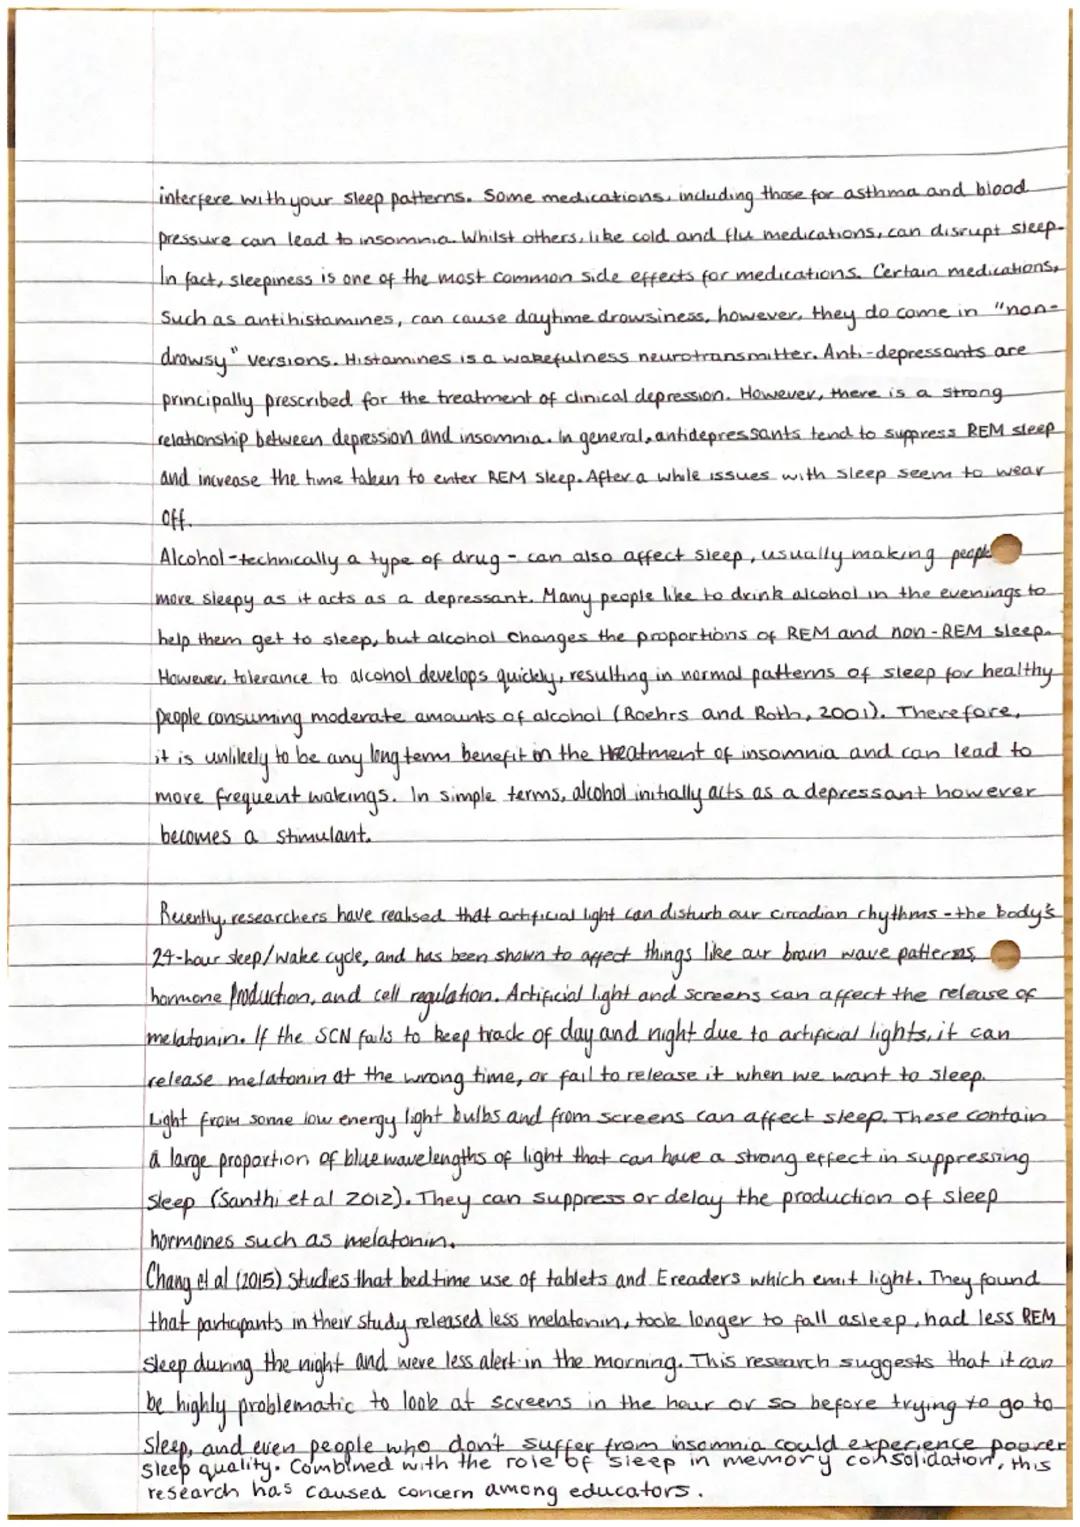 interfere with your sleep patterns. Some medications, including those for asthma and blood
pressure can lead to insomnia. Whilst others, like cold and flu medications, can disrupt sleep.
In fact, sleepiness is one of the most common side effects for medications. Certain medications,
such as antihistamines, can cause daytime drowsiness, however, they do come in "non-
drowsy" versions. Histamines is a wakefulness neurotransmitter. Anti-depressants are
principally prescribed for the treatment of clinical depression. However, there is a strong
relationship between depression and insomnia. In general, antidepressants tend to suppress REM sleep
and increase the time taken to enter REM sleep. After a while issues with sleep seem to wear
off.
Alcohol - technically a type of drug - can also affect sleep, usually making people
more sleepy as it acts as a depressant. Many people like to drink alcohol in the evenings to
help them get to sleep, but alcohol changes the proportions of REM and non-REM sleep.
However, tolerance to alcohol develops quickly, resulting in normal patterns of sleep for healthy
people consuming moderate amounts of alcohol (Roehrs and Roth, 2001). Therefore,
it is unlikely to be any long term benefit in the treatment of insomnia and can lead to
more frequent wakings. In simple terms, alcohol initially acts as a depressant however
becomes a stimulant.
Recently, researchers have realised that artificial light can disturb our circadian rhythms - the body's
24-hour sleep/wake cycle, and has been shown to affect things like our brain wave patterns,
hormone production, and cell regulation. Artificial light and screens can affect the release of
melatonin. If the SCN fails to keep track of day and night due to artificial lights, it can
release melatonin at the wrong time, or fail to release it when we want to sleep.
Light from some low energy light bulbs and from screens can affect sleep. These contain
a large proportion of blue wavelengths of light that can have a strong effect in suppressing
sleep (Santhi et al 2012). They can suppress or delay the production of sleep
hormones such as melatonin.
Chang et al (2015) studies that bedtime use of tablets and Ereaders which emit light. They found
that participants in their study released less melatonin, took longer to fall asleep, had less REM
sleep during the night and were less alert in the morning. This research suggests that it can
be highly problematic to look at screens in the hour or so before trying to go to
sleep, and even people who don't suffer from insomnia could experience poorer
sleep quality. Combined with the role of sleep in memory consolidation, this
research has caused concern among educators.